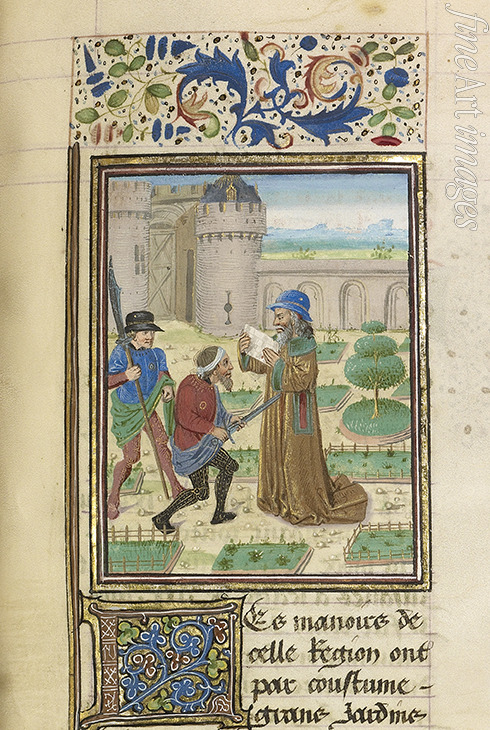 fineArt images
Les manoirs de
celle Region ont
par coustume -
grans Jardins